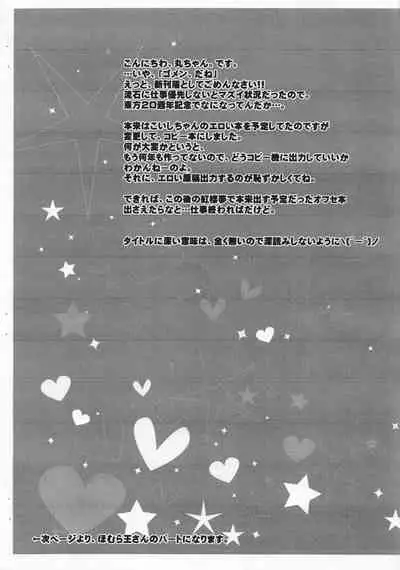 こんにちわ、丸ちゃん。です。
…いや、「ゴメン、だね」
えっと、新刊落としてごめんなさい!!
流石に仕事優先しないとマズイ状況だったので、
東方20週年記念でなになってんだか…。
本来はこいしちゃんのエロい本を予定してたのですが
変更して、コピー本にしました。
何が大変かというと、
もう何年も作ってないので、どうコピー機に出力していいか
わかんねーのよ。
それに、エロい原稿出力するのが恥ずかしくてね。
できれば、この後の紅楼夢で本来出す予定だったオフセ本
出さえたらなと…仕事終わればだけど。
タイトルに深い意味は、全く無いので深読みしないように\(´ー`)ノ
←次ページより、ほむら王さんのパートになります。